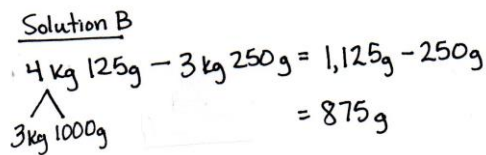 Solution B
4 kg 125g - 3 kg 250g = 1,125g - 250g
3kg 1000g
= 875g